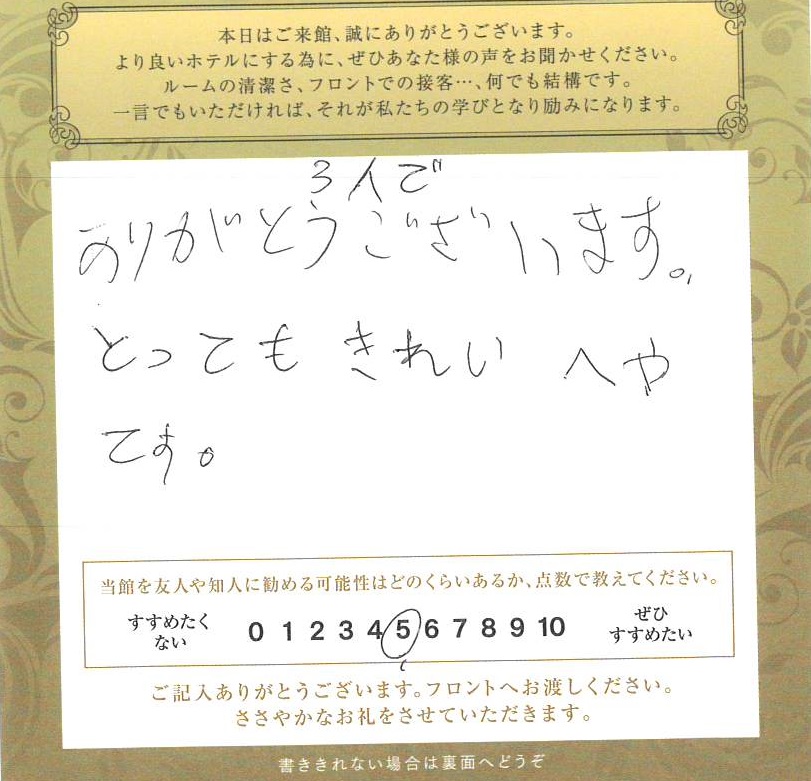 本日はご来館、誠にありがとうございます。
より良いホテルにする為に、ぜひあなた様の声をお聞かせください。
ルームの清潔さ、フロントでの接客…、何でも結構です。
一言でもいただければ、それが私たちの学びとなり励みになります。
3人で
ありがとうございます。
とってもきれい へや
てす。
当館を友人や知人に勧める可能性はどのくらいあるか、点数で教えてください。
すすめたく
ない
0 1 2 3 4 5 6 7 8 9 10
ぜひ
すすめたい
ご記入ありがとうございます。フロントへお渡しください。
ささやかなお礼をさせていただきます。
書ききれない場合は裏面へどうぞ